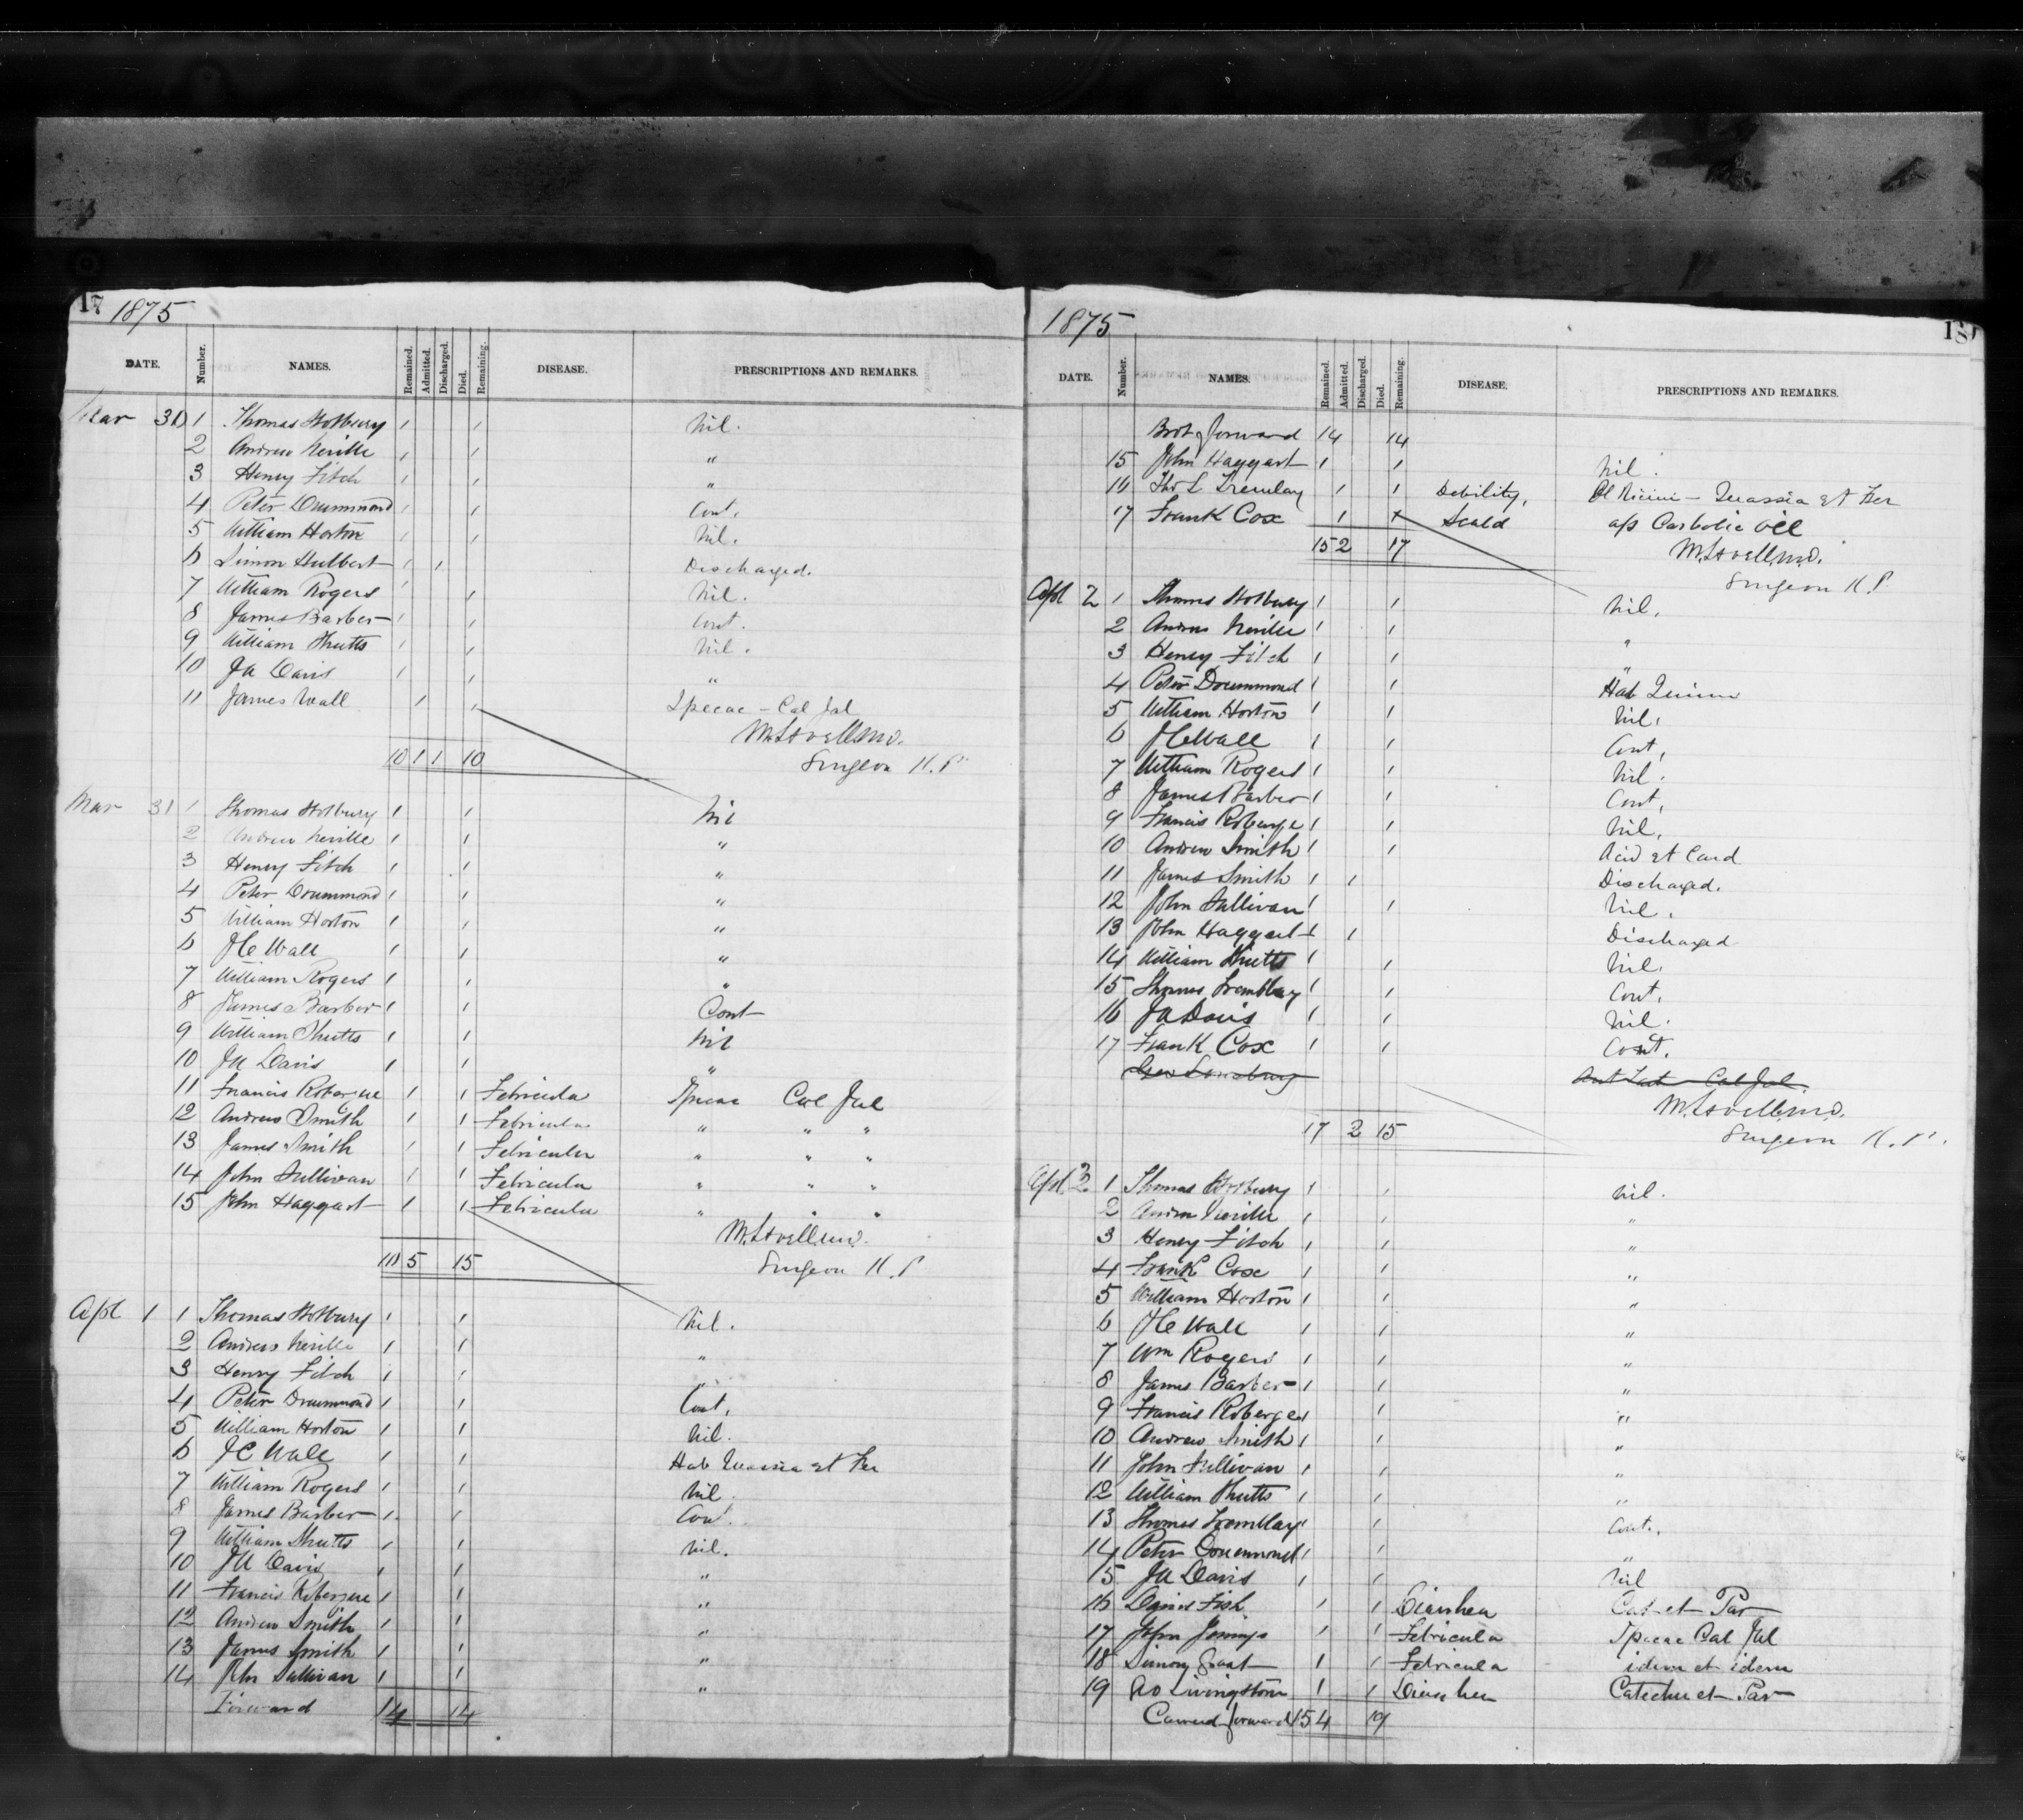 17 1875
DATE. Number. NAMES. Remained. Admitted. Discharged. Died. Remaining. DISEASE. PRESCRIPTIONS AND REMARKS.
Mar 30 1 Thomas Hotbury 1 1 Nil.
2 Andrew Neville 1 1 "
3 Henry Fitch 1 1 "
4 Peter Drummond 1 1 Cont.
5 William Horton 1 1 Nil.
6 Simon Hulbert 1 1 Discharged.
7 William Rogers 1 1 Nil.
8 James Barber 1 1 Cont.
9 William Shutts 1 1 Nil.
10 JA Davis 1 1 "
11 James Wall 1 1 Ipecac - Cal Jal
M. Lavell MD.
10 1 1 10 Surgeon K.P.
Mar 31 1 Thomas Hotbury 1 1 Nil
2 Andrew Neville 1 1 "
3 Henry Fitch 1 1 "
4 Peter Drummond 1 1 "
5 William Horton 1 1 "
6 JC Wall 1 1 "
7 William Rogers 1 1 "
8 James Barber 1 1 Cont
9 William Shutts 1 1 Nil
10 JA Davis 1 1 "
11 Francis Roberge 1 1 Febricula Ipecac Cal Jal
12 Andrew Smith 1 1 Febricula " " "
13 James Smith 1 1 Febricula " " "
14 John Sullivan 1 1 Febricula " " "
15 John Haggart 1 1 Febricula " " "
M. Lavell MD.
10 5 15 Surgeon K.P
Apl 1 1 Thomas Hotbury 1 1 Nil.
2 Andrew Neville 1 1 "
3 Henry Fitch 1 1 "
4 Peter Drummond 1 1 Cont.
5 William Horton 1 1 Nil.
6 JC Wall 1 1 Hab Quassia et Fer
7 William Rogers 1 1 Nil
8 James Barber 1 1 Cont.
9 William Shutts 1 1 Nil.
10 JA Davis 1 1 "
11 Francis Roberge 1 1 "
12 Andrew Smith 1 1 "
13 James Smith 1 1 "
14 John Sullivan 1 1 "
Forward 14 14
1875 18
DATE. Number. NAMES. Remained. Admitted. Discharged. Died. Remaining. DISEASE. PRESCRIPTIONS AND REMARKS.
Brot forward 14 14
15 John Haggart 1 1 Nil.
16 Thos L Tremblay 1 1 Debility, Ol Ricini - Quassia et Fer
17 Frank Cox 1 1 Scald a/p Carbolic Oil
15 2 17 M. Lavell MD.
Surgeon K.P
Apl 2 1 Thomas Hotbury 1 1 Nil.
2 Andrew Neville 1 1 "
3 Henry Fitch 1 1 "
4 Peter Drummond 1 1 Hab Quinine
5 William Horton 1 1 Nil.
6 JC Wall 1 1 Cont.
7 William Rogers 1 1 Nil.
8 James Barber 1 1 Cont.
9 Francis Roberge 1 1 Nil.
10 Andrew Smith 1 1 Acid et Card
11 James Smith 1 1 Discharged.
12 John Sullivan 1 1 Nil.
13 John Haggart 1 1 Discharged
14 William Shutts 1 1 Nil.
15 Thomas Tremblay 1 1 Cont.
16 JA Davis 1 1 Nil.
17 Frank Cox 1 1 Cont.
Cal Jal.
M. Lavell MD.
17 2 15 Surgeon K.P.
Apl 3 1 Thomas Hotbury 1 1 Nil.
2 Andrew Neville 1 1 "
3 Henry Fitch 1 1 "
4 Frank Cox 1 1 "
5 William Horton 1 1 "
6 JC Wall 1 1 "
7 Wm Rogers 1 1 "
8 James Barber 1 1 "
9 Francis Roberge 1 1 "
10 Andrew Smith 1 1 "
11 John Sullivan 1 1 "
12 William Shutts 1 1 "
13 Thomas Tremblay 1 1 Cont.
14 Peter Drummond 1 1 "
15 JA Davis 1 1 Nil
16 Fish 1 1 Diarrhea Cat et Par
17 John Jennings 1 1 Febricula Ipecac Cal Jal
18 Simon Grant 1 1 Febricula idem et idem
19 Livingstone 1 1 Diarrhea Catechu et Par
Carried forward 15 4 19